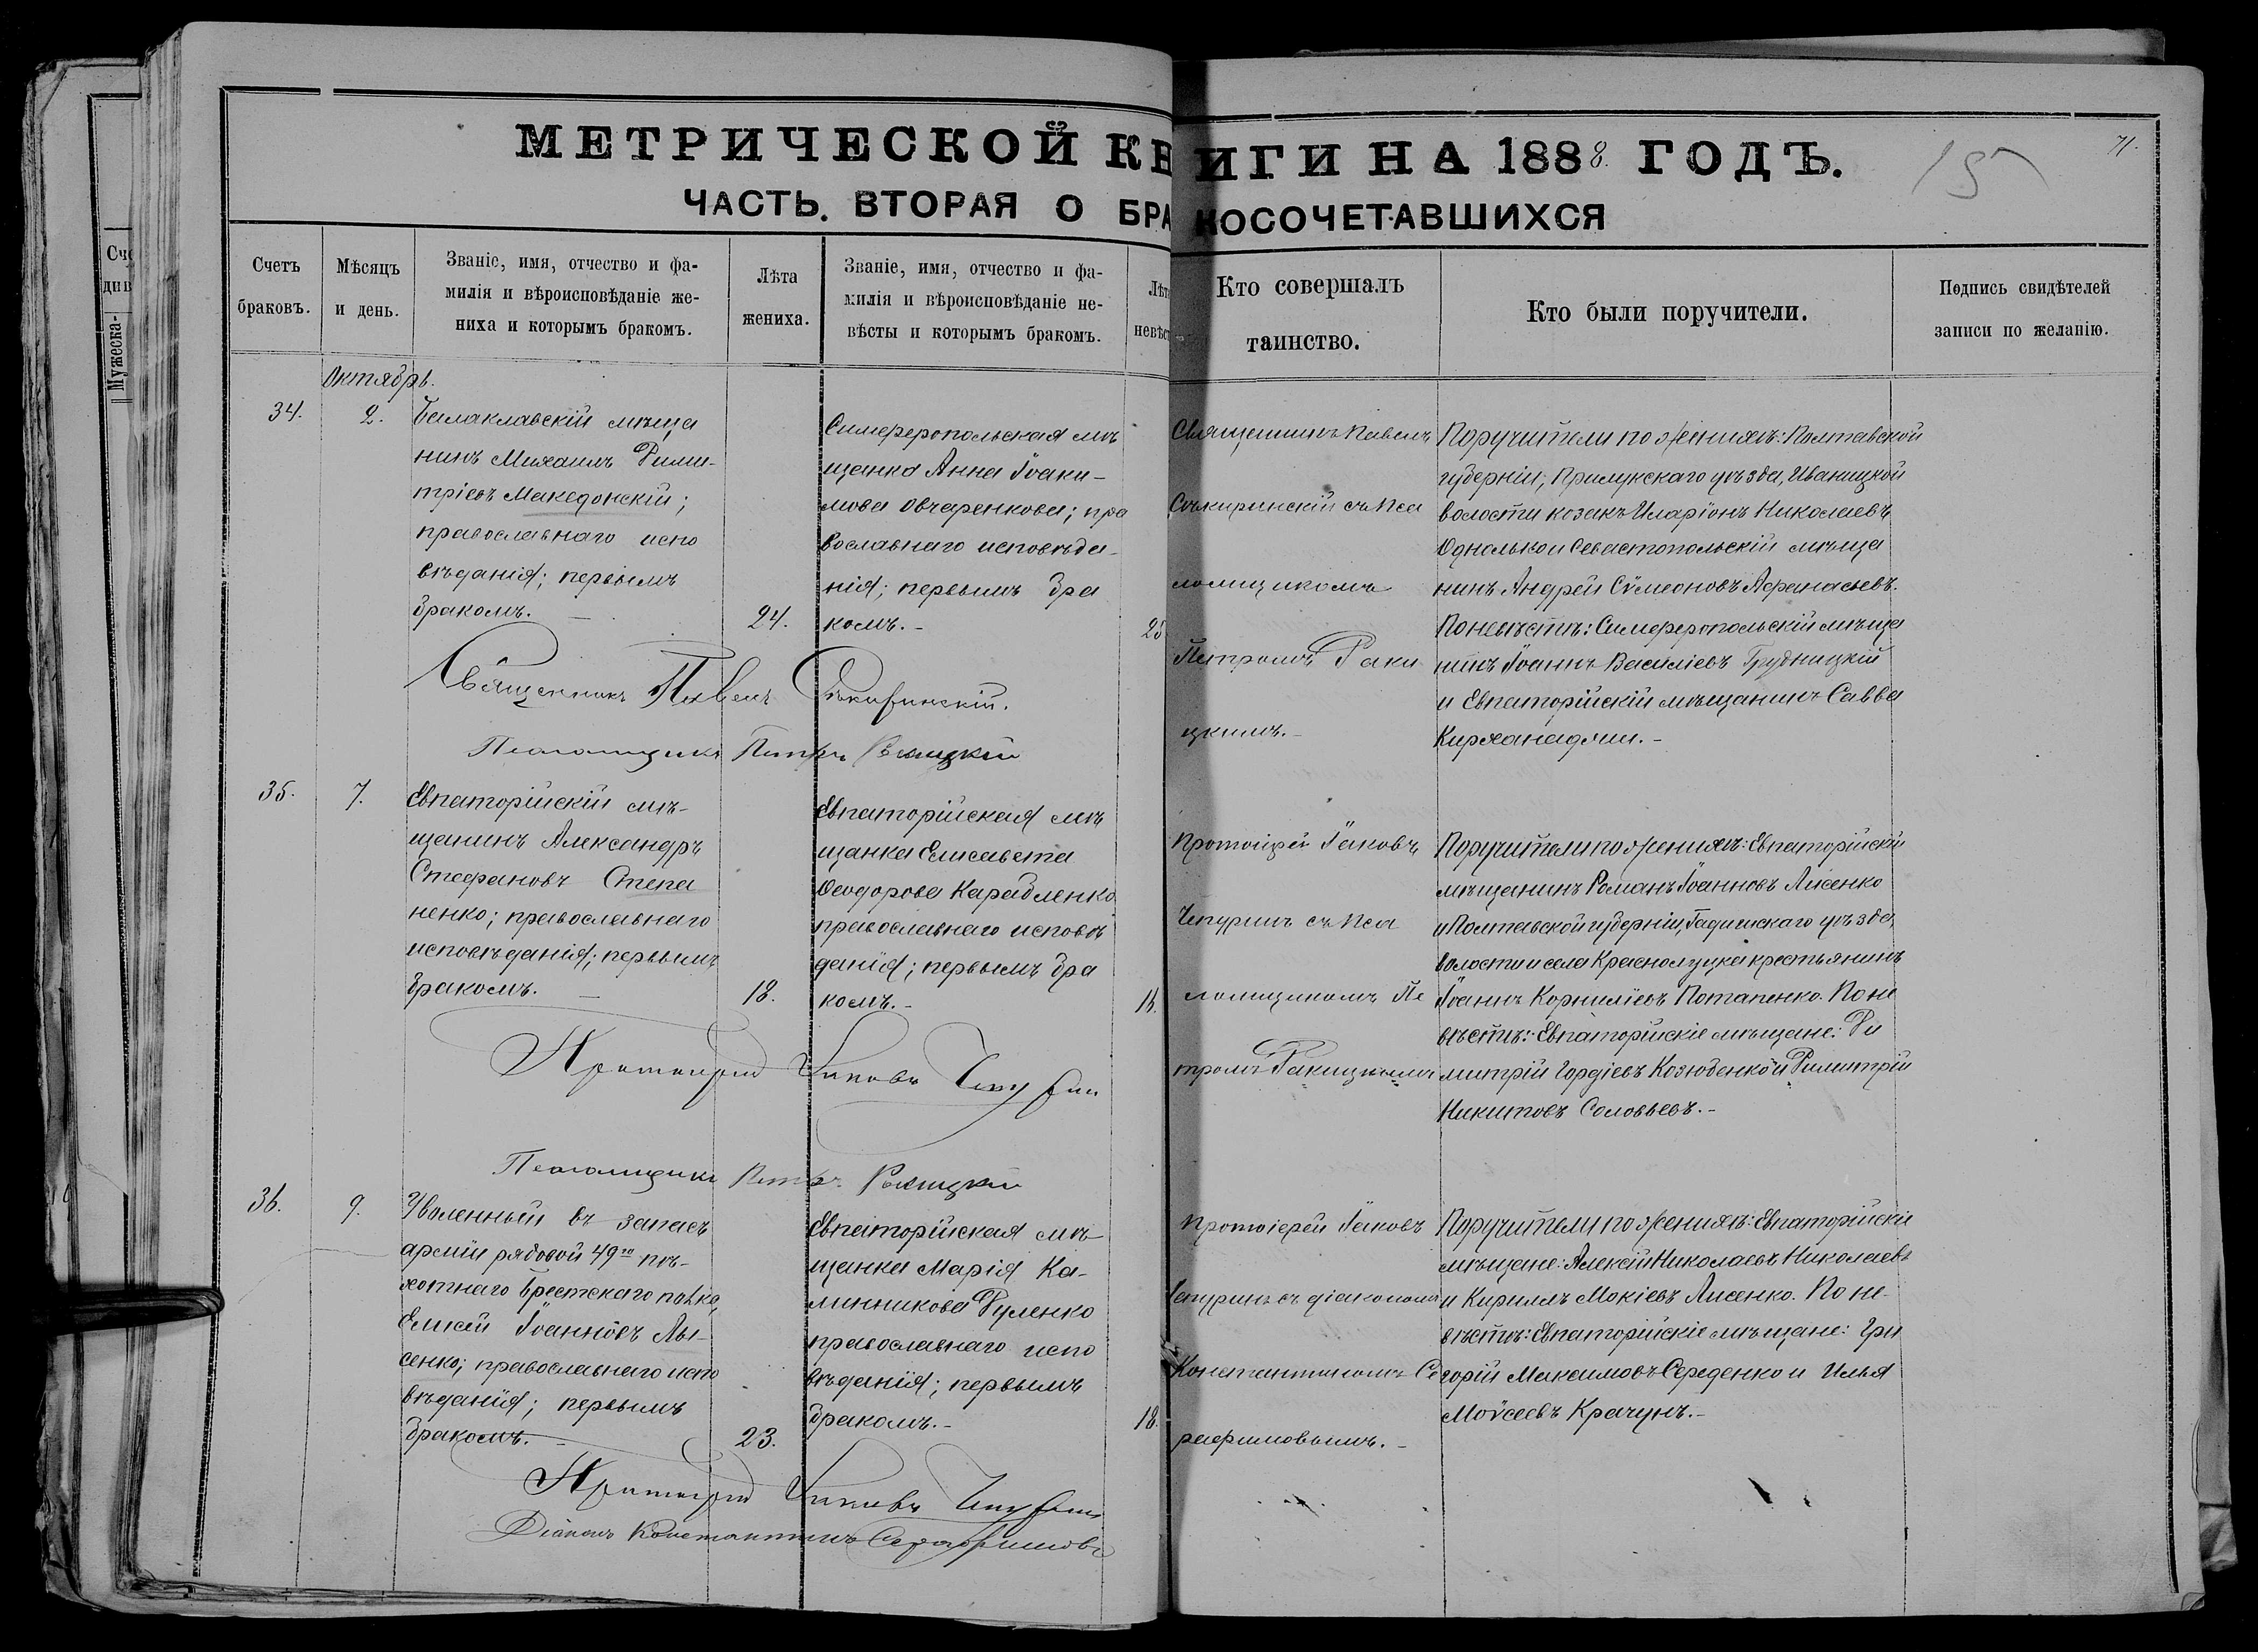 МЕТРИЧЕСКОЙ КНИГИ НА 1888. ГОДЪ.
71.
ЧАСТЬ. ВТОРАЯ О БРАКОСОЧЕТАВШИХСЯ
Счетъ
браковъ.
Мѣсяцъ
и день.
Званіе, имя, отчество и фа-
милія и вѣроисповѣданіе же-
ниха и которымъ бракомъ.
Лѣта
жениха.
Званіе, имя, отчество и фа-
милія и вѣроисповѣданіе не-
вѣсты и которымъ бракомъ.
Кто совершалъ
таинство.
Кто были поручители.
Подпись свидѣтелей
записи по желанію.
Мужеска-
Октябрь.
34.
2.
Балаклавскій мѣща
нинъ Михаилъ Дими-
тріевъ Македонскій;
православнаго испо
вѣданія; первымъ
бракомъ.
24.
Симферопольская мѣ
щанка Анна Іоаки-
мова Овчаренкова; пра
вославнаго исповѣда-
нія; первымъ бра
комъ.-
25
Священникъ Павелъ
Сѣкиринскій съ Пса
ломщикомъ
Петромъ Раки
цкимъ.-
Поручители по женихѣ: Полтавской
губерніи, Прилукскаго уѣзда, Иваницкой
волости козакъ Иларіонъ Николаевъ
и Севастопольскій мѣща
нинъ Андрей Сѵмеоновъ Афанасьевъ.
По невѣстѣ: Симферопольскій мѣща
нинъ Іоаннъ Василіевъ Грудницкій
и Евпаторійскій мѣщанинъ Савва
Кирханаджи.-
Священникъ Павелъ Сѣкиринскій.
Псаломщикъ Петръ Ракицкій
35.
7.
Евпаторійскій мѣ-
щанинъ Александръ
Стефановъ Степа
ненко; православнаго
исповѣданія; первымъ
бракомъ.
18.
Евпаторійская мѣ
щанка Елисавета
Ѳеодорова Карабленко
православнаго исповѣ
данія; первымъ бра
комъ.-
16.
Протоіерей Іаковъ
Чепуринъ съ Пса
ломщикомъ Пе
тромъ Ракицкимъ
Поручители по женихѣ: Евпаторійскій
мѣщанинъ Романъ Іоанновъ Лисенко
и Полтавской губерніи, Гадячскаго уѣзда,
волости и села Краснолуцка крестьянинъ
Іоаннъ Корниліевъ Потапенко. По не
вѣстѣ: Евпаторійскіе мѣщане: Ди
митрій Гордіевъ Козюбенко и Димитрій
Никитовъ Соловьевъ.-
Протоіерей Іаковъ Чепуринъ
Псаломщикъ Петръ Ракицкій
36.
9.
Уволенный въ запасъ
арміи рядовой 49го пѣ-
хотнаго Брестскаго полка,
Елисей Іоанновъ Лы-
сенко; православнаго испо
вѣданія; первымъ
бракомъ.
23.
Евпаторійская мѣ
щанка Марія Ка-
линникова Дуленко
православнаго испо
вѣданія; первымъ
бракомъ.-
18.
Протоіерей Іаковъ
Чепуринъ съ діакономъ
Константиномъ Се
рафимовымъ.-
Поручители по женихѣ: Евпаторійскіе
мѣщане: Алексій Николаевъ Николаевъ
и Кириллъ Мокіевъ Лисенко. По не-
вѣстѣ: Евпаторійскіе мѣщане: Гри
горій Максимовъ Середенко и Илья
Моѵсеевъ Крачунъ.-
Протоіерей Іаковъ Чепуринъ
Діаконъ Константинъ Серафимовъ